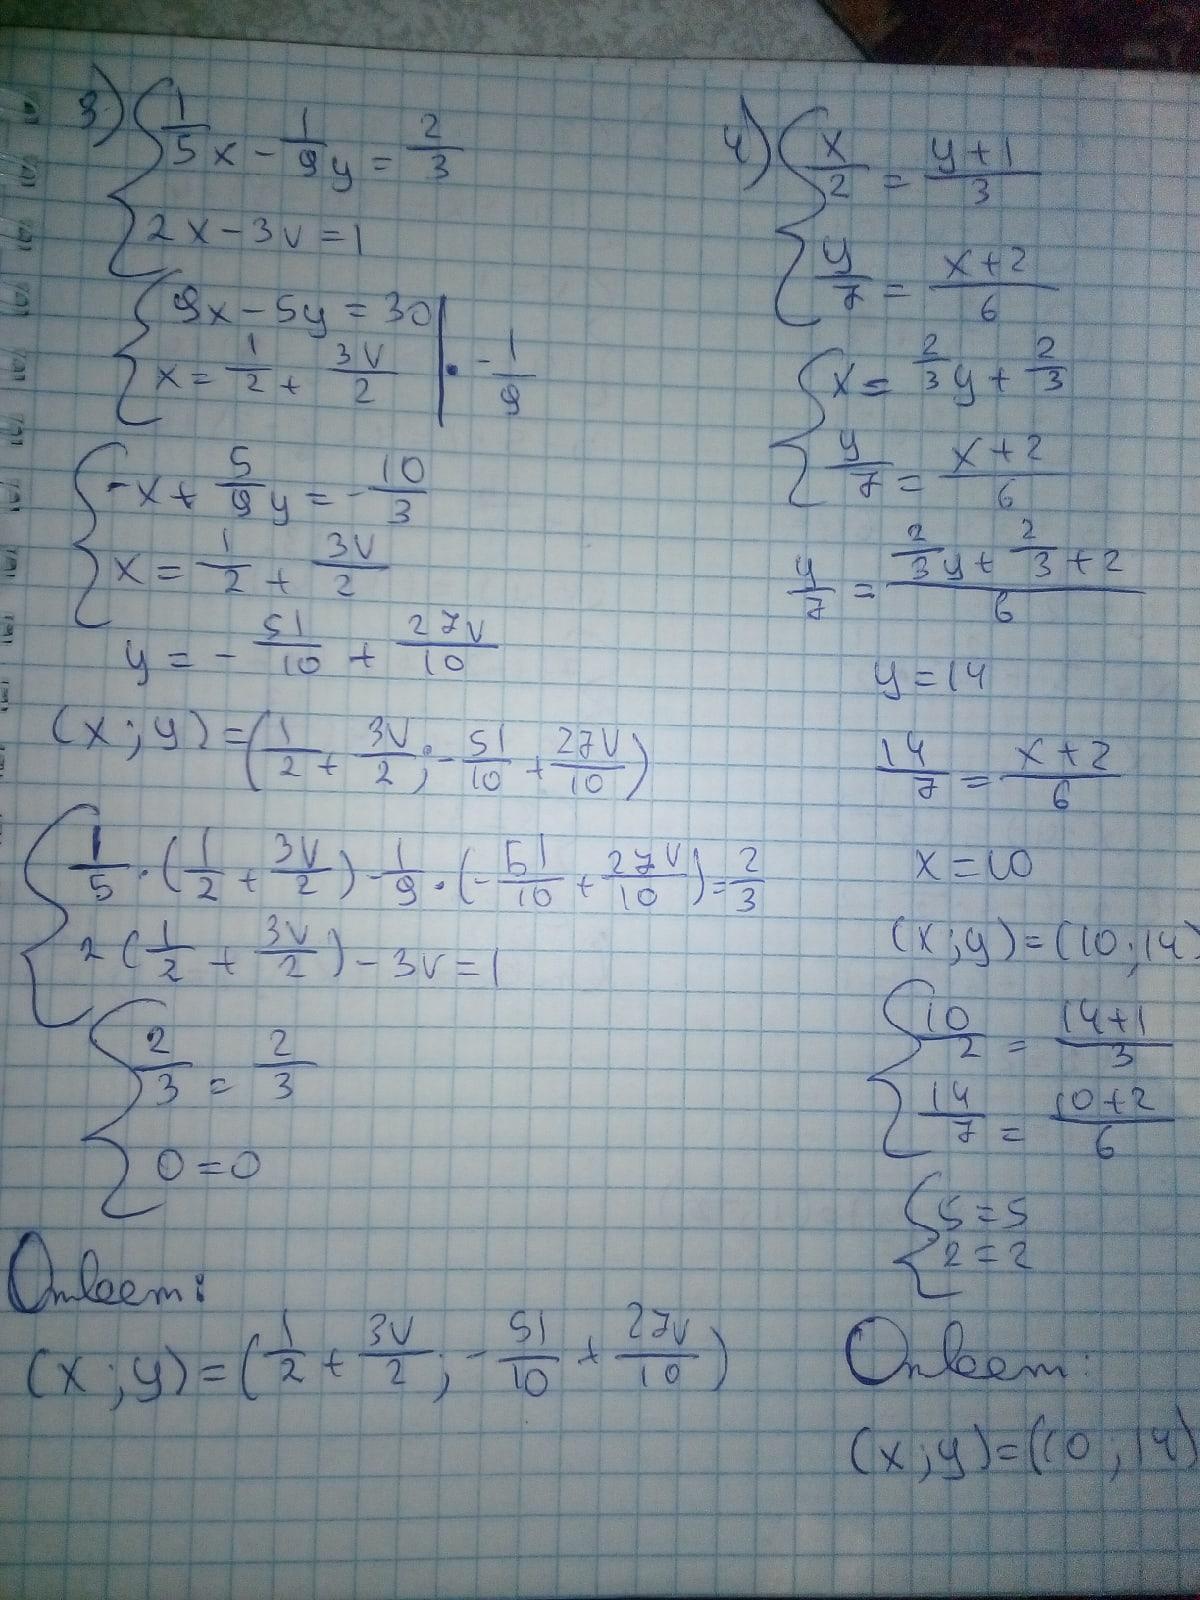 3) 1/5 x - 1/9 y = 2/3
2x - 3v = 1
9x - 5y = 30
x = 1/2 + 3v/2 | · -1/9
-x + 5/9 y = -10/3
x = 1/2 + 3v/2
y = -51/10 + 27v/10
(x; y) = (1/2 + 3v/2; -51/10 + 27v/10)
1/5 · (1/2 + 3v/2) - 1/9 · (-51/10 + 27v/10) = 2/3
2(1/2 + 3v/2) - 3v = 1
2/3 = 2/3
0 = 0
Ответ:
(x; y) = (1/2 + 3v/2; -51/10 + 27v/10)
4) x/2 = y+1/3
y/7 = x+2/6
x = 2/3 y + 2/3
y/7 = x+2/6
y/7 = 2/3 y + 2/3 + 2/6
y = 14
14/7 = x+2/6
x = 10
(x; y) = (10; 14)
10/2 = 14+1/3
14/7 = 10+2/6
5 = 5
2 = 2
Ответ:
(x; y) = (10; 14)